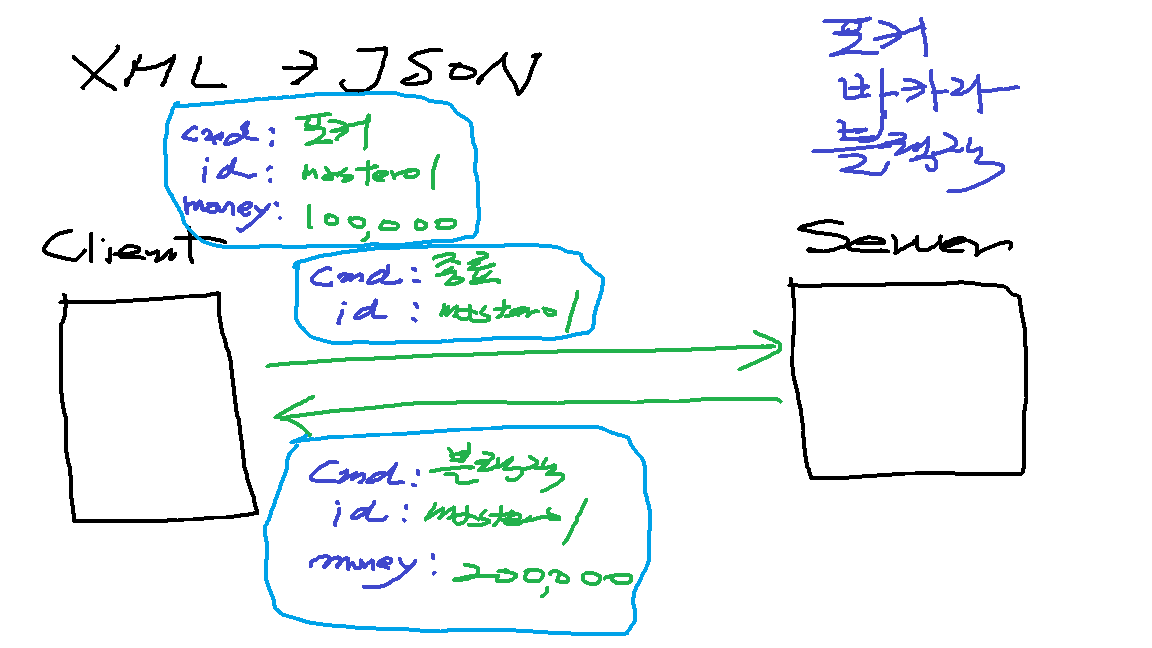 XML → JSON
포커
바카라
블랙잭
cmd: 포커
id: mastero1
money: 100,000
Client
Server
cmd: 종료
id: mastero1
cmd: 블랙잭
id: mastero1
money: 200,000